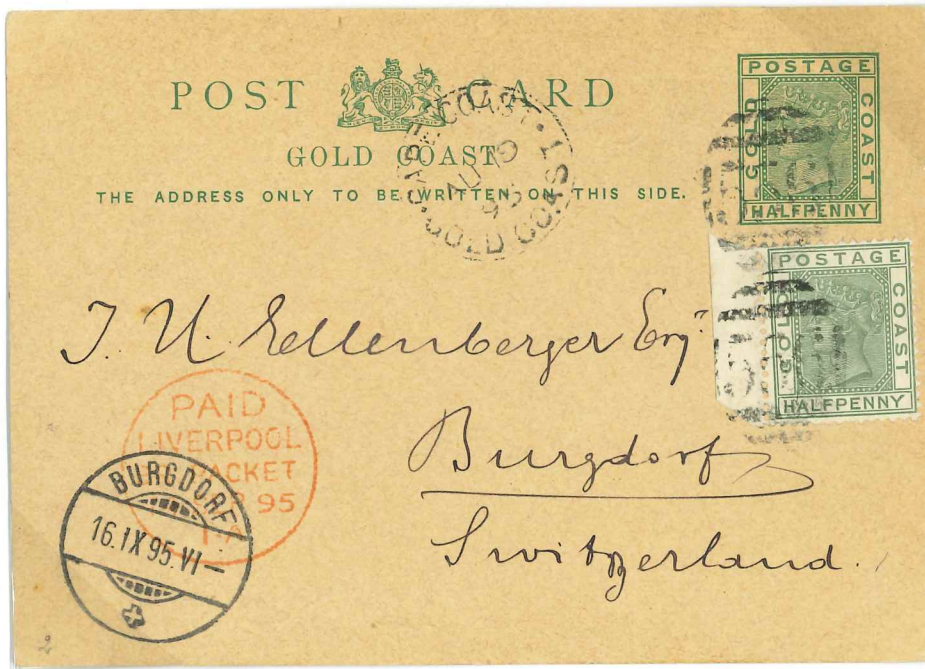 POST CARD
GOLD COAST
THE ADDRESS ONLY TO BE WRITTEN ON THIS SIDE.
POSTAGE
GOLD
COAST
HALFPENNY
CAPE COAST
AU 19
95
GOLD COAST
POSTAGE
GOLD
COAST
HALFPENNY
J. U. Gellenberger Esq
Burgdorf
Switzerland.
PAID
LIVERPOOL
PACKET
95
BURGDORF
16.IX.95.VI